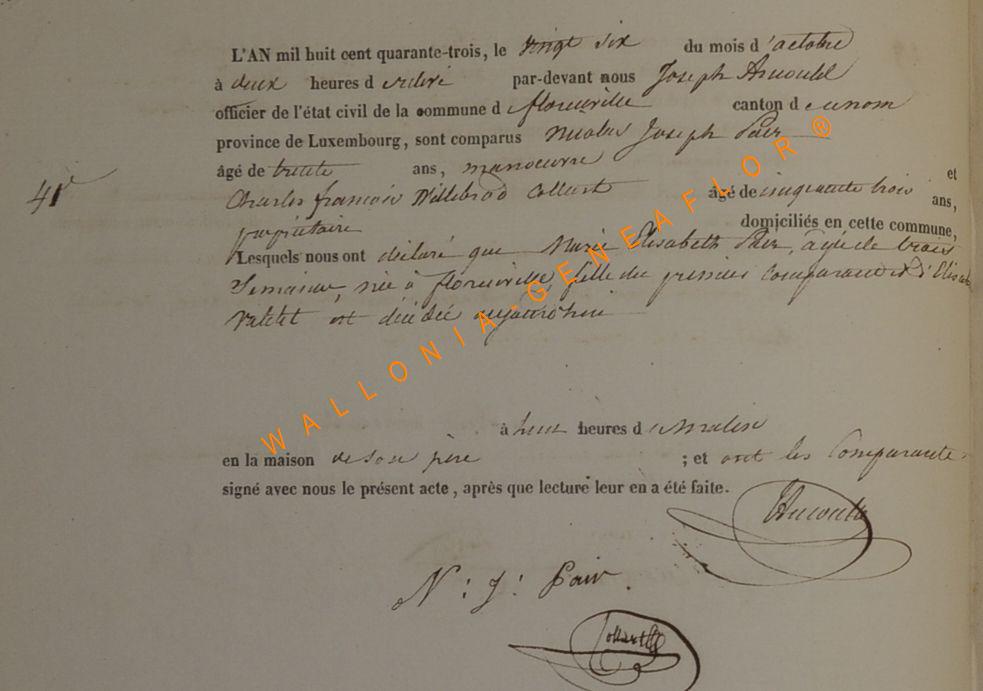 L'AN mil huit cent quarante-trois, le vingt six du mois d'octobre
à deux heures de relevé par-devant nous Joseph Arnould
officier de l'état civil de la commune de florenville canton d
province de Luxembourg, sont comparus Nicolas Joseph
âgé de trente ans, manoeuvre et
41e
Charles françois Willebrod Collart âgé de cinquante trois ans,
propriétaire domiciliés en cette commune,
Lesquels nous ont déclaré que Marie Elisabeth agée de trois
Semaines, née à florenville, fille du premier Comparant et d'
est décédée aujourd'hui
à huit heures du Matin
en la maison de son père ; et ont les Comparants
signé avec nous le présent acte, après que lecture leur en a été faite.
Arnould
N: J: Pair
Collart
WALLONIA-GENEAFLOR®